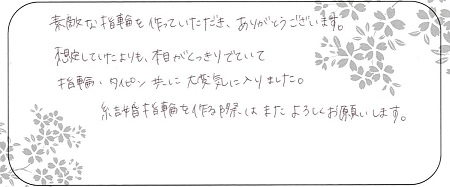 素敵な指輪を作っていただき、ありがとうございます。
想定していたよりも、木目がくっきりでていて
指輪・タイピン 共に 大変気に入りました。
結婚指輪を作る際は また よろしくお願いします。